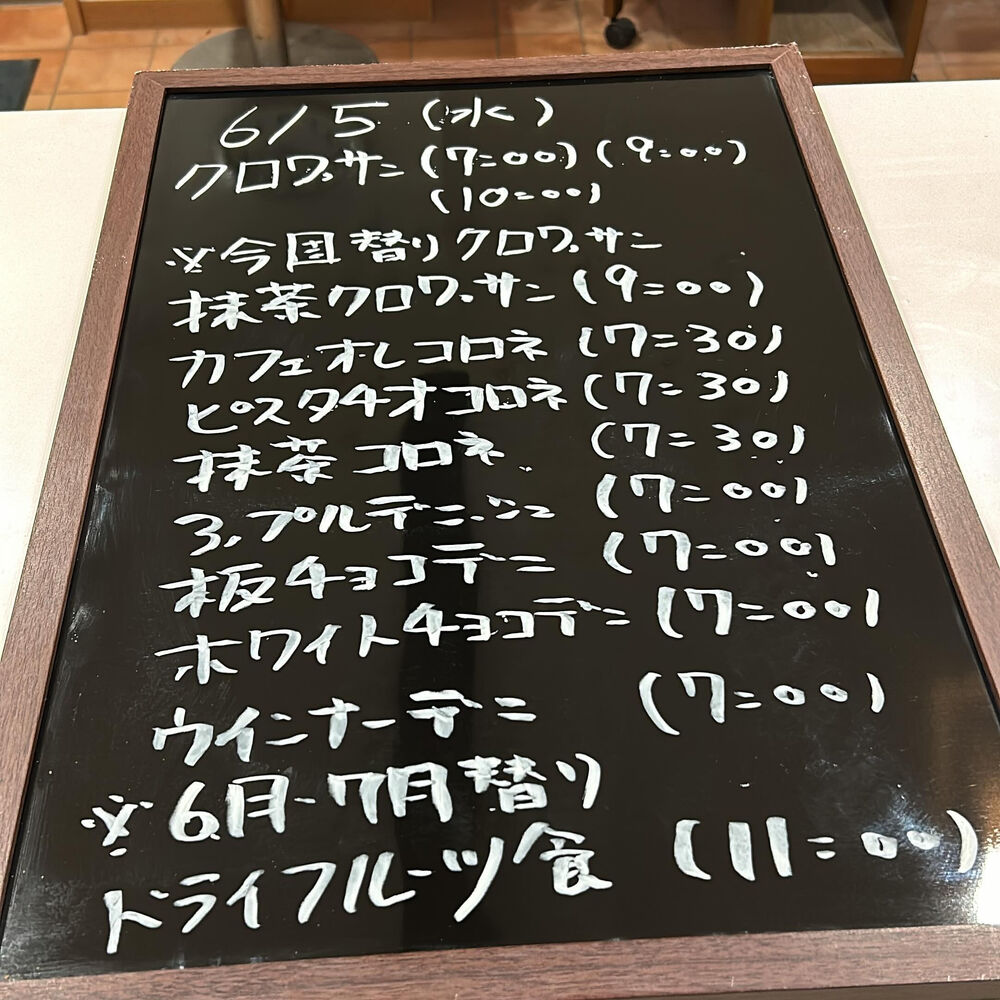 6/5 (水)
クロワッサン (7:00) (9:00)
(10:00)
※今国替りクロワッサン
抹茶クロワッサン (9:00)
カフェオレコロネ (7:30)
ピスタチオコロネ (7:30)
抹茶コロネ (7:30)
3.プルデニッシュ (7:00)
板チョコデニ (7:00)
ホワイトチョコデニ (7:00)
ウインナーデニ (7:00)
※6月-7月替り
ドライフルーツ食 (11:00)